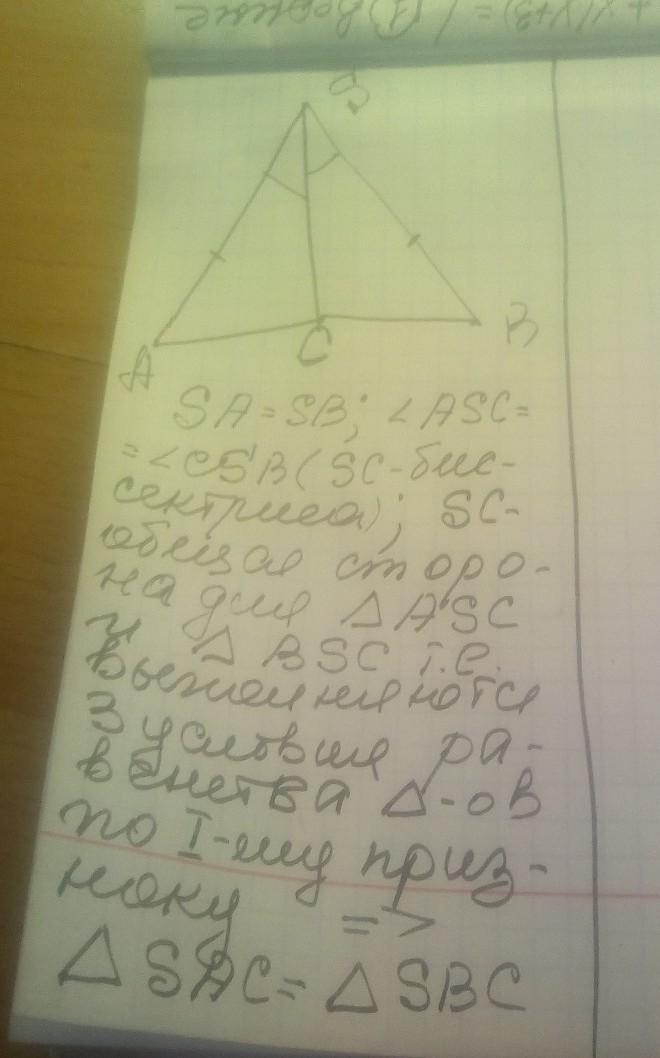 S
A
C
B
SA = SB; ∠ASC =
= ∠CSB (SC - бис-
сектриса); SC -
общая сторо-
на для △ASC
и △BSC т.е.
выполняются
3 условия ра-
венства △-ов
по I-му приз-
наку =>
△SAC = △SBC